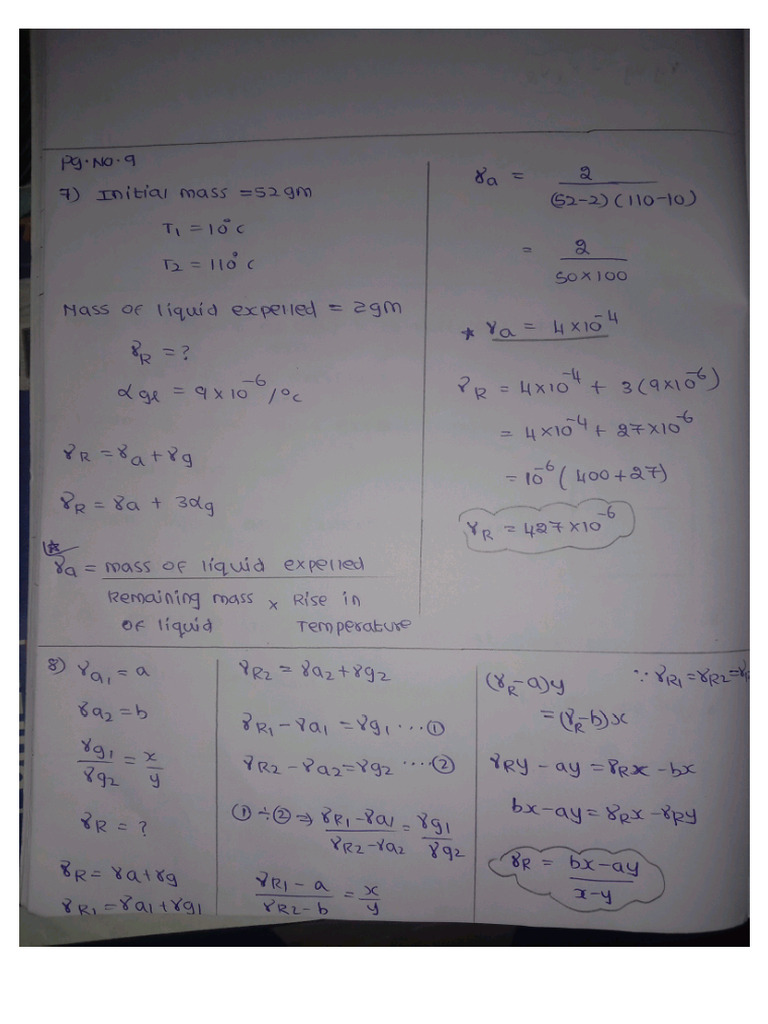 Pg.No.9
7) Initial mass = 52gm
T1 = 10°c
T2 = 110°c
Mass of liquid expelled = 2gm
γR = ?
αgl = 9×10^-6/°c
γR = γa + γg
γR = γa + 3αg
γa = mass of liquid expelled
Remaining mass × Rise in
of liquid temperature
γa = 2
(52-2)(110-10)
= 2
50×100
* γa = 4×10^-4
γR = 4×10^-4 + 3(9×10^-6)
= 4×10^-4 + 27×10^-6
= 10^-6(400+27)
γR = 427×10^-6
8) γa1 = a
γa2 = b
γg1/γg2 = x/y
γR = ?
γR = γa+γg
γR1 = γa1+γg1
γR2 = γa2+γg2
γR1-γa1 = γg1 ...①
γR2-γa2=γg2 ....②
①÷② ⇒ γR1-γa1/γR2-γa2 = γg1/γg2
γR1-a/γR2-b = x/y
(γR-a)y ∵ γR1=γR2=γR
=(γR-b)x
γRy - ay = γRx - bx
bx-ay = γRx-γRy
γR = bx-ay/x-y